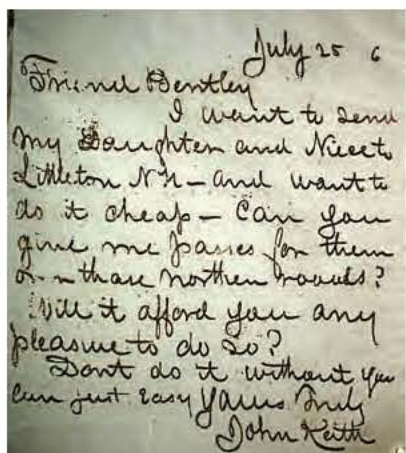 July 25 6
Friend Bentley
I want to send
my Daughter and Niece to
Littleton N H - and want to
do it cheap - Can you
give me passes for them
on those northern roads?
Will it afford you any
pleasure to do so?
Dont do it without you
can just easy Yours Truly
John Keith